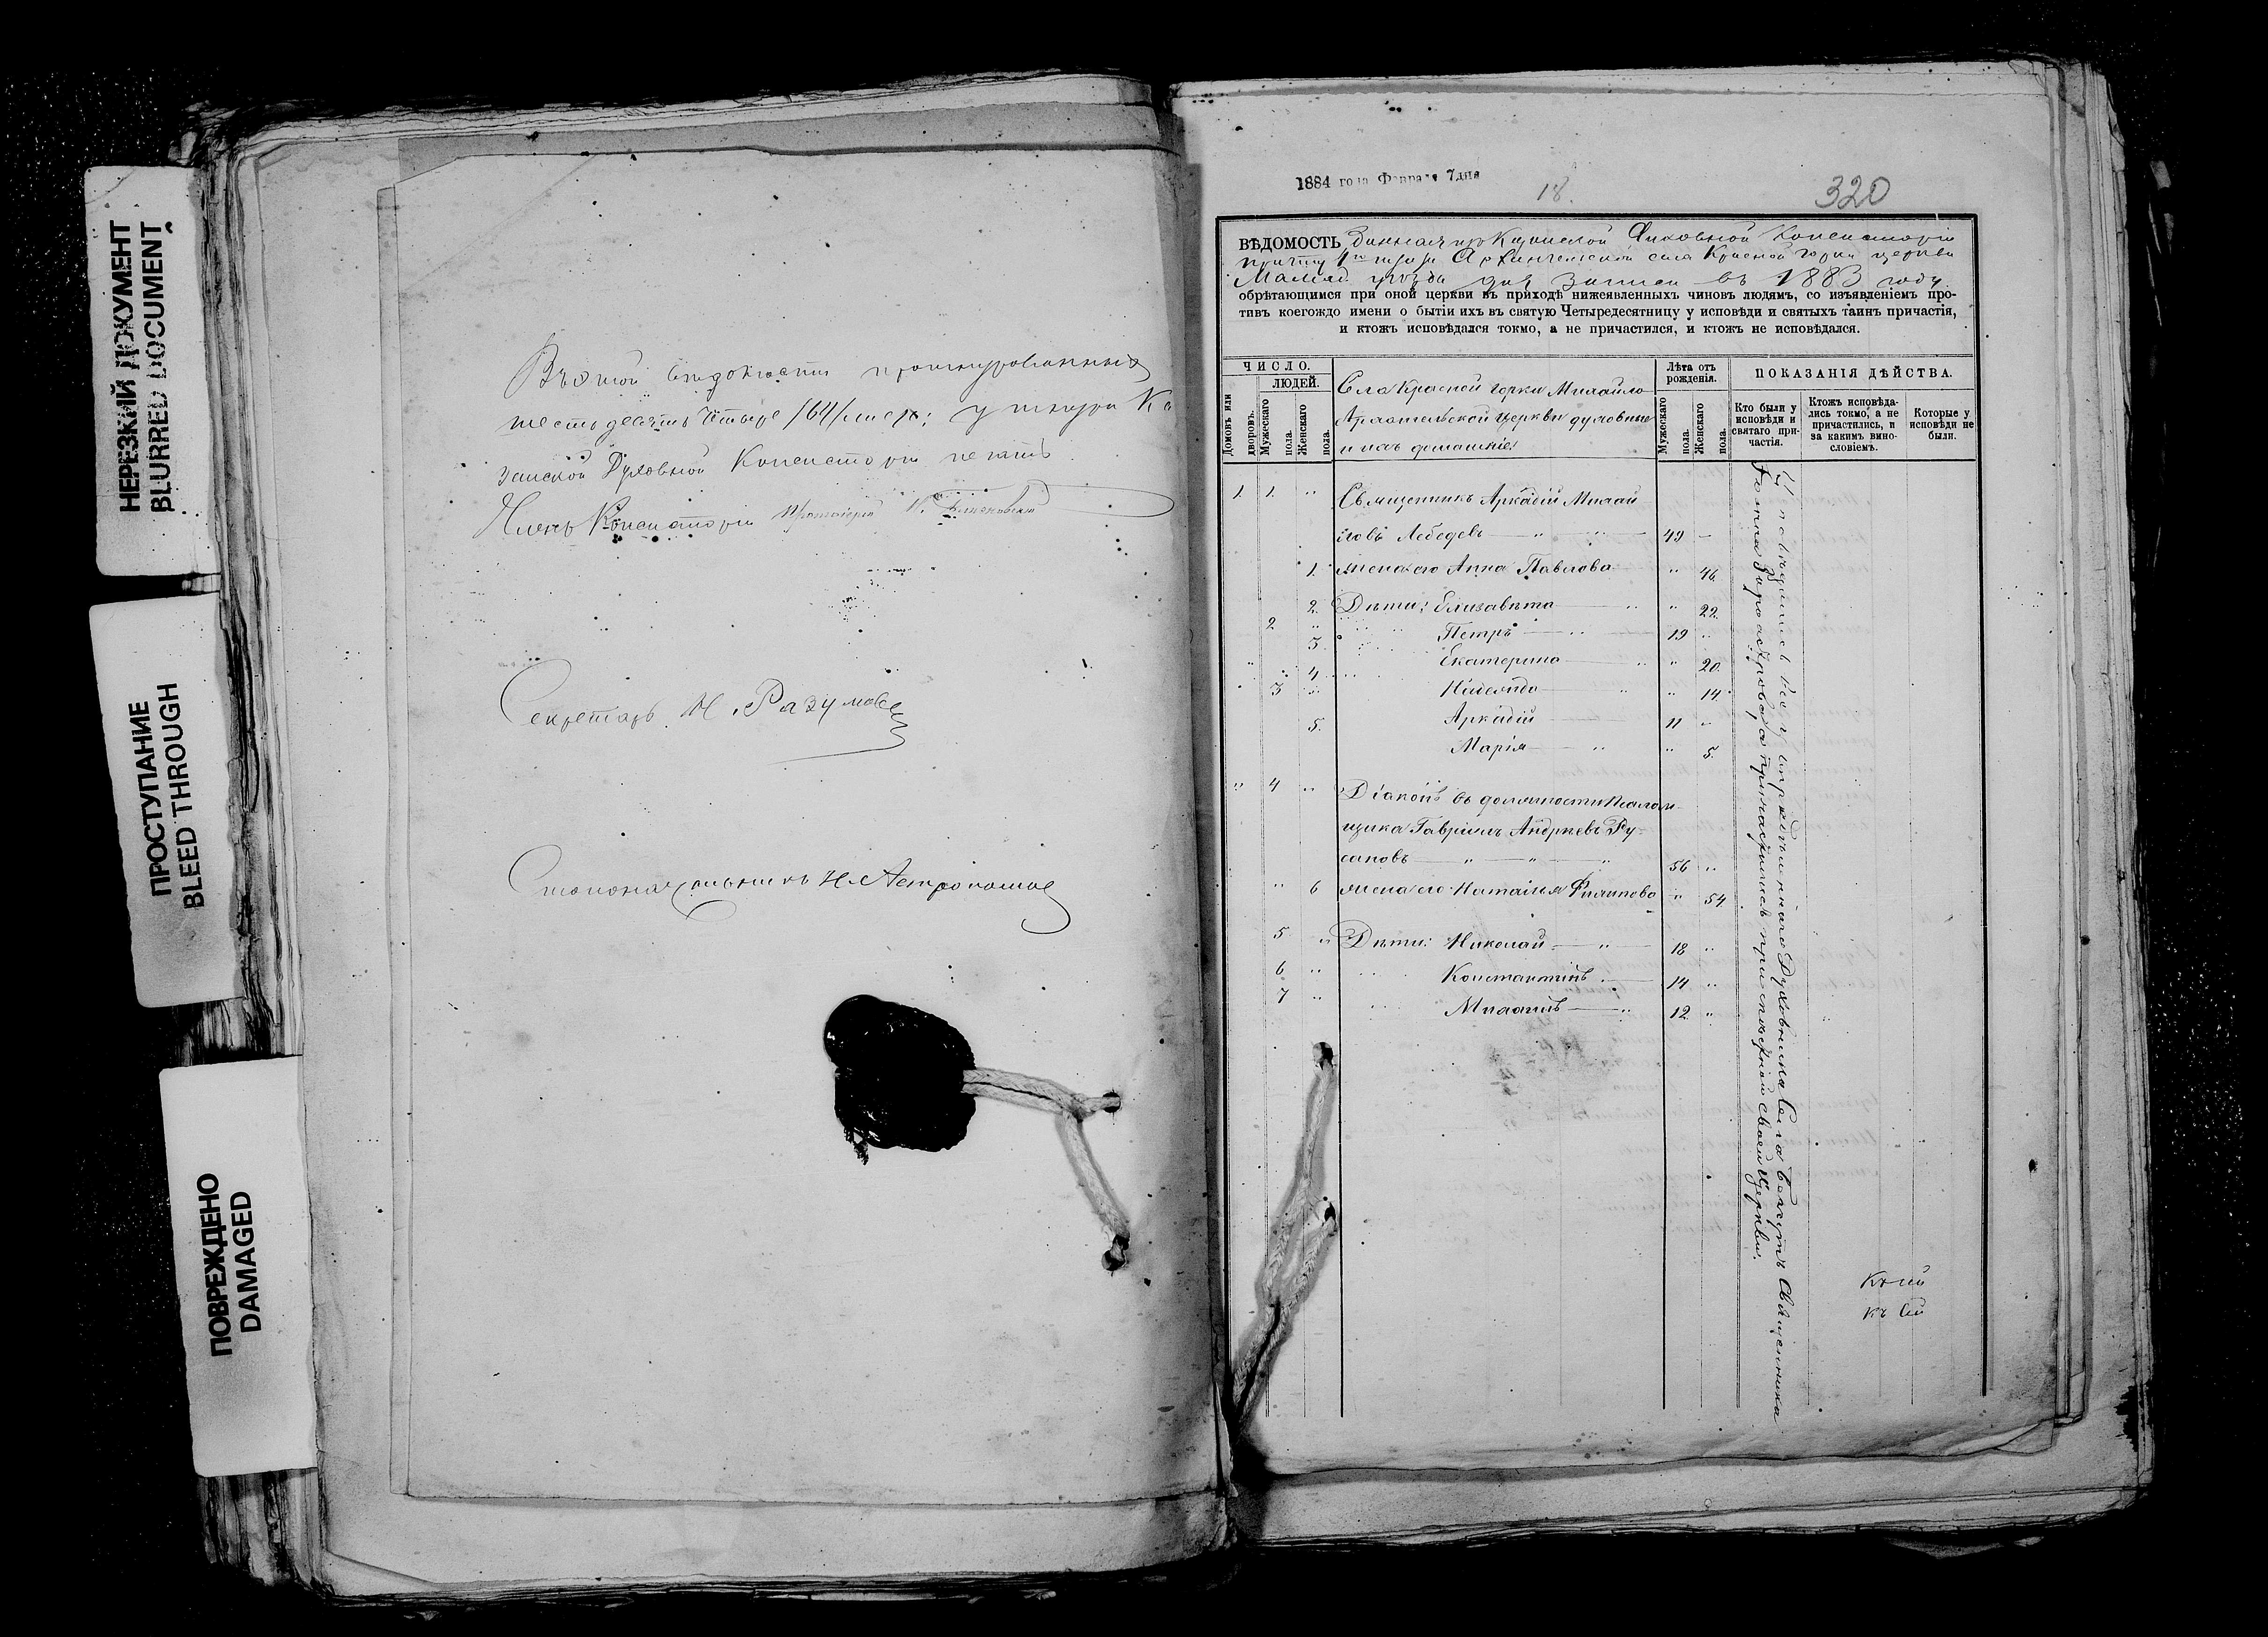 НЕРЕЗКИЙ ДОКУМЕНТ
BLURRED DOCUMENT
ПРОСТУПАНИЕ
BLEED THROUGH
ПОВРЕЖДЕНО
DAMAGED
Въ этой вѣдомости прошнурованныхъ
шестьдесятъ четыре /64/ листа; у шнура Ка
занской Духовной Консисторіи печать.
Членъ Консисторіи Протоіерей
Секретарь Н. Разумовскій
Столоначальникъ Н.
1884 года Февраля 7 дня
18.
320
ВѢДОМОСТЬ, данная изъ Казанской Духовной Консисторіи
причту Архангельской села Красной Горки церкви
Мамад. уѣзда для записи въ 1883 году
обрѣтающимся при оной церкви въ приходѣ нижеявленныхъ чиновъ людямъ, со изъявленіемъ про-
тивъ коегождо имени о бытіи ихъ въ святую Четыредесятницу у исповѣди и святыхъ таинъ причастія,
и ктожъ исповѣдался токмо, а не причастился, и ктожъ не исповѣдался.
ЧИСЛО.
ЛЮДЕЙ.
Домовъ или дворовъ.
Мужескаго пола.
Женскаго пола.
Села Красной Горки Михайло
Архангельской церкви духовные
и ихъ домашніе:
Лѣта отъ рожденія.
Мужескаго пола.
Женскаго пола.
ПОКАЗАНІЯ ДѢЙСТВА.
Кто были у исповѣди и святаго причастія.
Ктожъ исповѣдались токмо, а не причастились, и за какимъ винословіемъ.
Которые у исповѣди не были.
1. 1. " Священникъ Аркадій Михай
ловъ Лебедевъ — " — " — 49 —
1. Жена его Анна Павлова — " 46
2. Дѣти: Елизавета — " " 22.
2. " Петръ — " 19 "
3. Екатерина — " " 20.
4. — " " 14.
3 Аркадій — 11 "
5. Марія — " " 5.
" 4 " Діаконъ въ должности псалом-
щика Гавріилъ Андреевъ Ру-
сановъ — " — " — " 56 "
" 6 Жена его Наталія Филипова " 54
5 " Дѣти: Николай — " 18 "
6 " Константинъ — 14 "
7 " Михаилъ — " 12 "
Исповѣдались всѣ у опредѣленнаго Духовника Села Священника
а причастились при своей Церкви.
къ сей